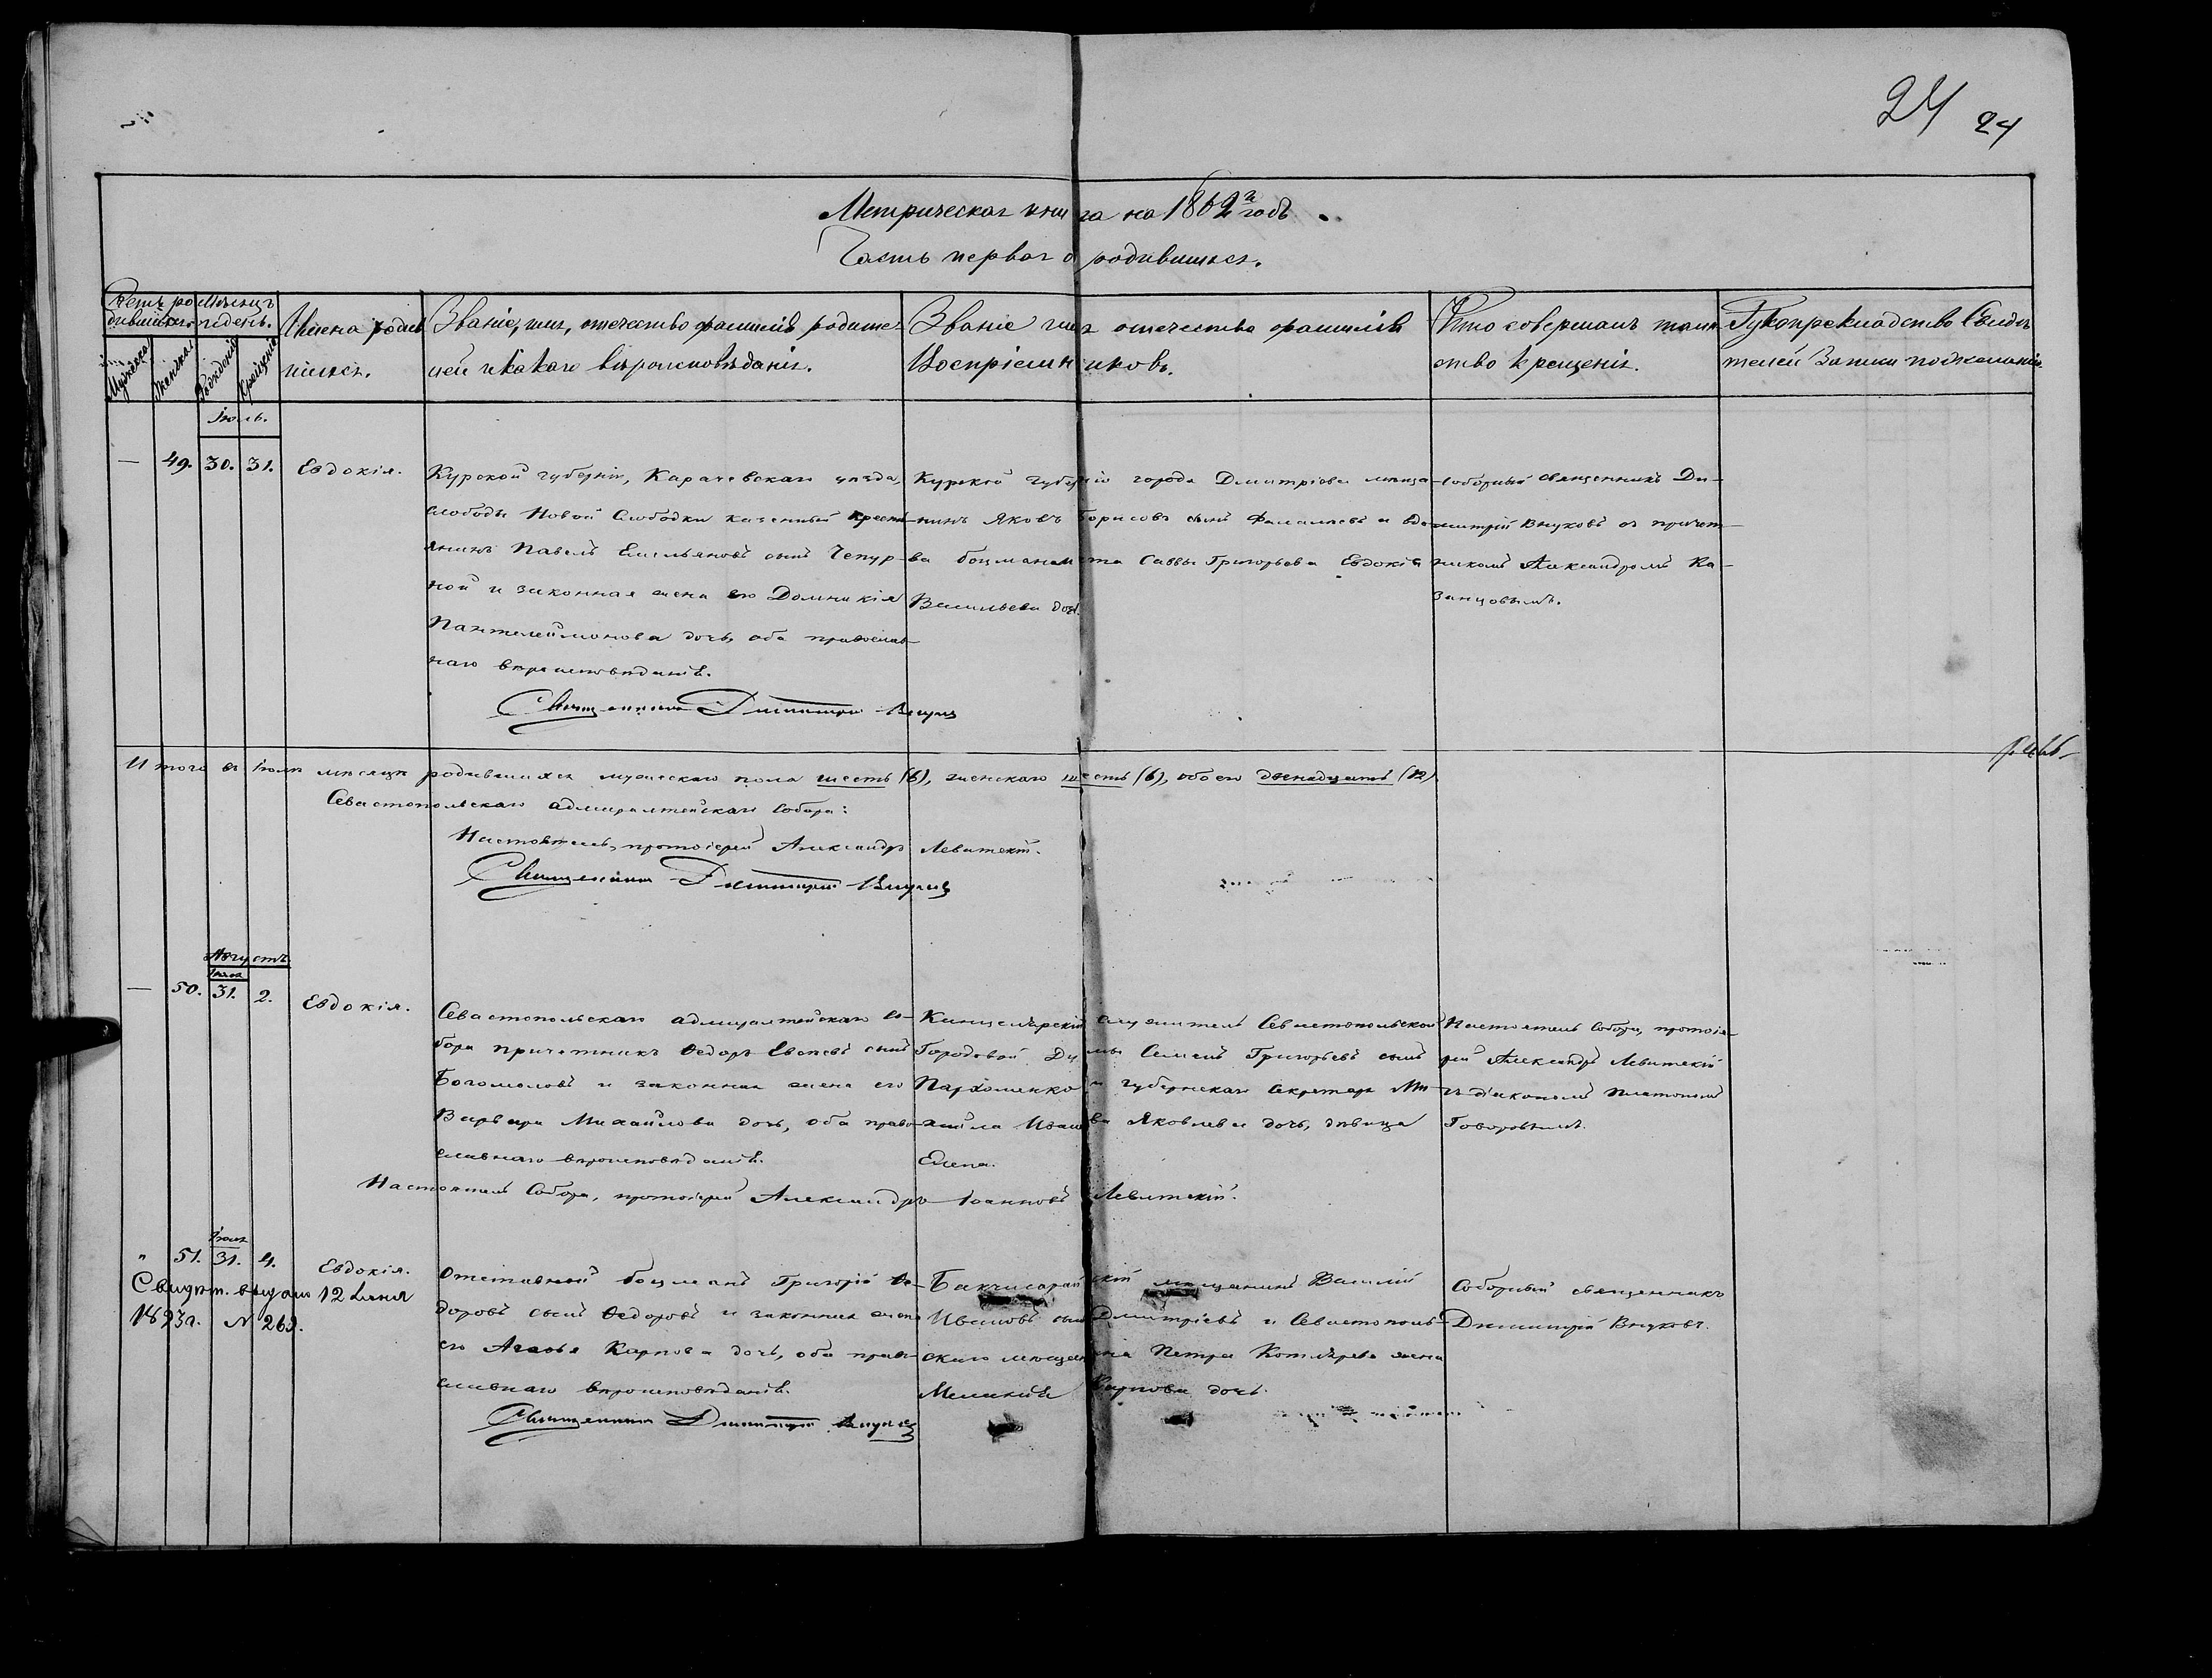 24 24
Метрическая книга на 1862й годъ.
Часть первая о родившихся.
Счетъ родившихся.
Мѣсяцъ и день.
Мужеска
Женска
Рожденія
Крещенія
Имена родив
шихся.
Званіе, имя, отечество фамилія родите-
лей и какаго вѣроисповѣданія.
Званіе имя отечество фамилія
Воспріемниковъ.
Кто совершалъ таин
ство крещенія.
Рукоприкладство Свидѣ
телей Записи по желанію.
Іюль.
— 49. 30. 31. Евдокія.
Курской губерніи, Карачевскаго уѣзда,
слободы Новой Слободки казенный крестья-
янинъ Павелъ Емельяновъ сынъ Чепур-
ной и законная жена его Домникія
Пантелеймонова дочь, оба православ-
наго вѣроисповѣданія.
Курской губерніи города Дмитріева мѣща-
нинъ Яковъ Борисовъ сынъ и вдо-
ва боцманмата Саввы Григорьева Евдокія
Васильева дочь.
Соборный священникъ Ди-
митрій Внуковъ съ причет-
никомъ Александромъ Ка-
занцовымъ.
Священникъ Димитрій Внуковъ
Итого въ Іюлѣ мѣсяцѣ родившихся мужескаго пола шесть (6), женскаго шесть (6), обоего двенадцать (12)
Севастопольскаго адмиралтейскаго Собора:
Настоятель, протоіерей Александръ Левитскій.
Священникъ Димитрій Внуковъ
Августъ
Іюля
— 50. 31. 2. Евдокія.
Севастопольскаго адмиралтейскаго со-
бора причетникъ Ѳедоръ Евсѣевъ сынъ
Богомоловъ и законная жена его
Варвара Михайлова дочь, оба право-
славнаго вѣроисповѣданія.
Канцелярскій служитель Севастопольской
Городовой Думы Семенъ Григорьевъ сынъ
Пархоменко и губернскаго секретаря Ми-
хаила Яковлева дочь, дѣвица
Елена.
Настоятель Собора, протоіе-
рей Александръ Левитскій
съ діакономъ Платономъ
Говоровымъ.
Настоятель Собора, протоіерей Александръ Іоанновъ Левитскій.
Іюля
" 51. 31. 4. Евдокія.
Свидѣт. выдано 12 Іюня
1893г. № 262.
Отставной боцманъ Григорій Ѳе-
доровъ сынъ Ѳедоровъ и законная жена
его Агаѳья Карпова дочь, оба право-
славнаго вѣроисповѣданія.
Бакчисарайскій мѣщанинъ Василій
Ивановъ сынъ Дмитріевъ и Севастополь-
скаго мѣщанина Петра Котлярева жена
Меланія Карпова дочь.
Соборный священникъ
Димитрій Внуковъ.
Священникъ Димитрій Внуковъ